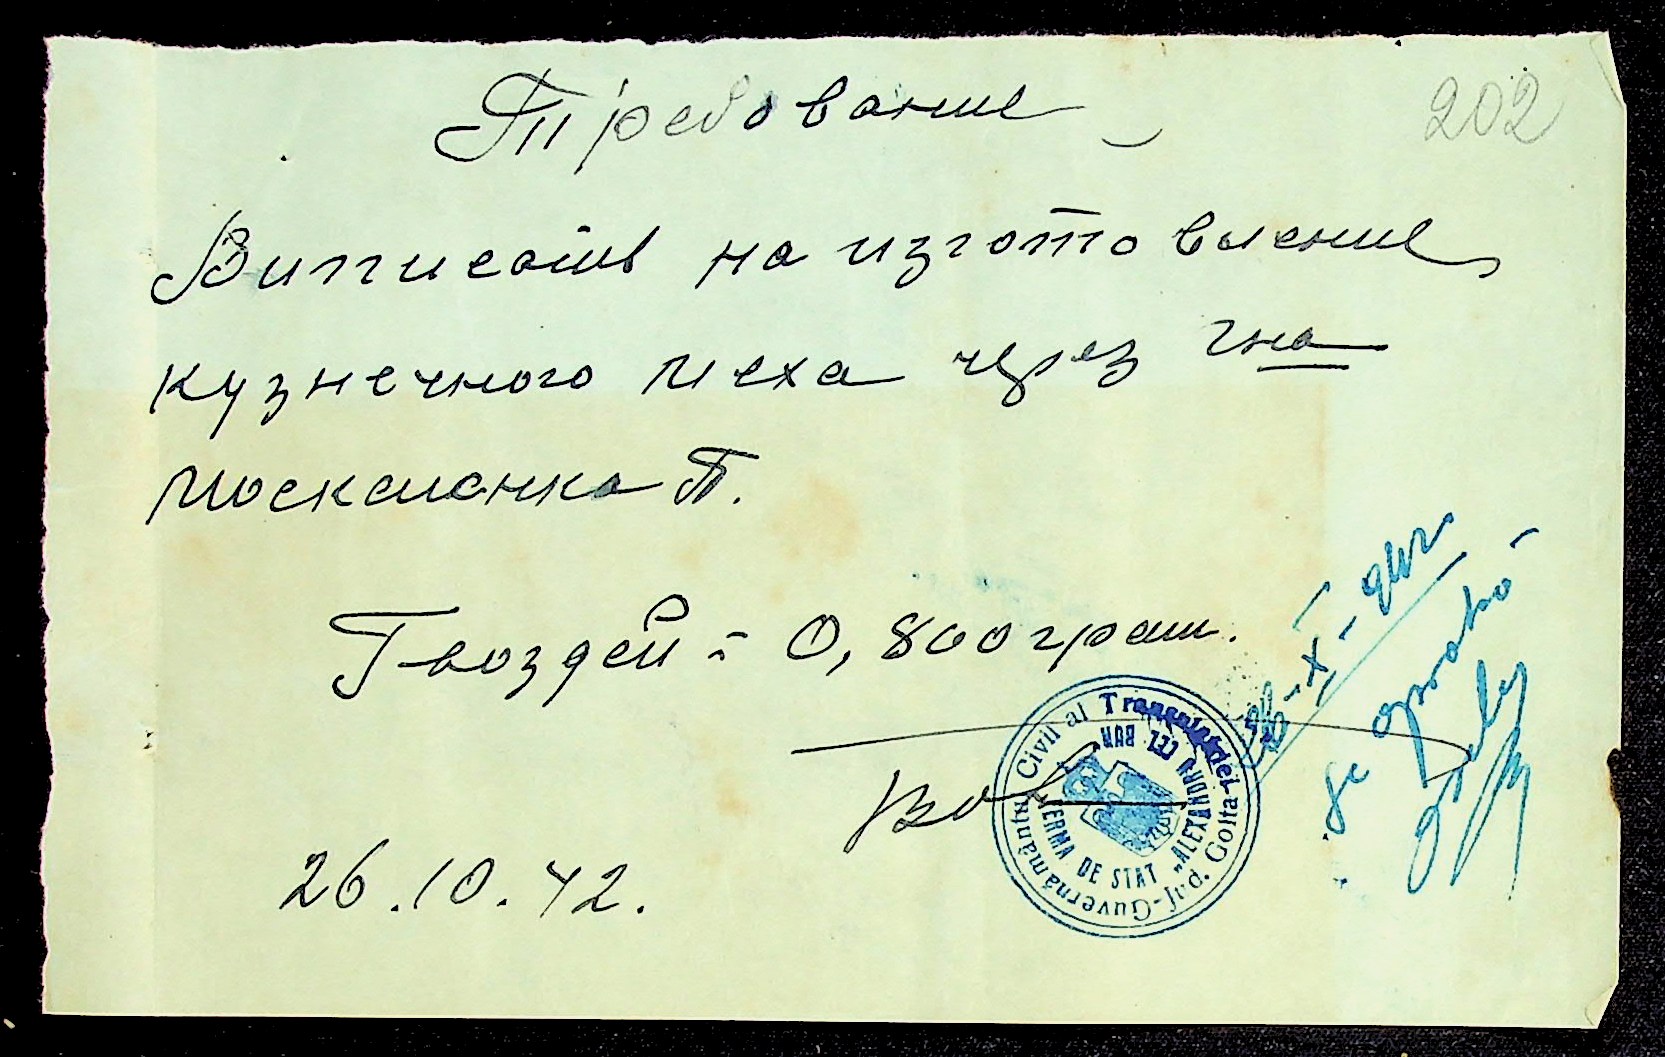 Требование
202
Виписать на изготовление
кузнечного меха через гна
Москаленка П.
Гвоздей = 0,800 грам.
26-X-942
se aprobă
Guvernământul Civil al Transnistriei
Jud. Golta
FERMA DE STAT „ALEXANDRU CEL BUN
26.10.42.